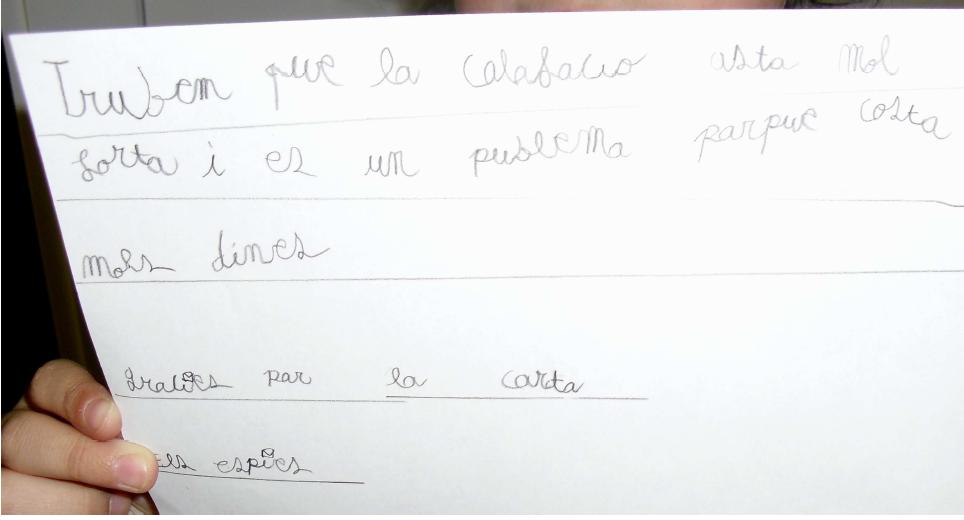 Trubem que la calafacio asta mol
forta i es un publema parque costa
mols dines
gracies par la carta
els espies